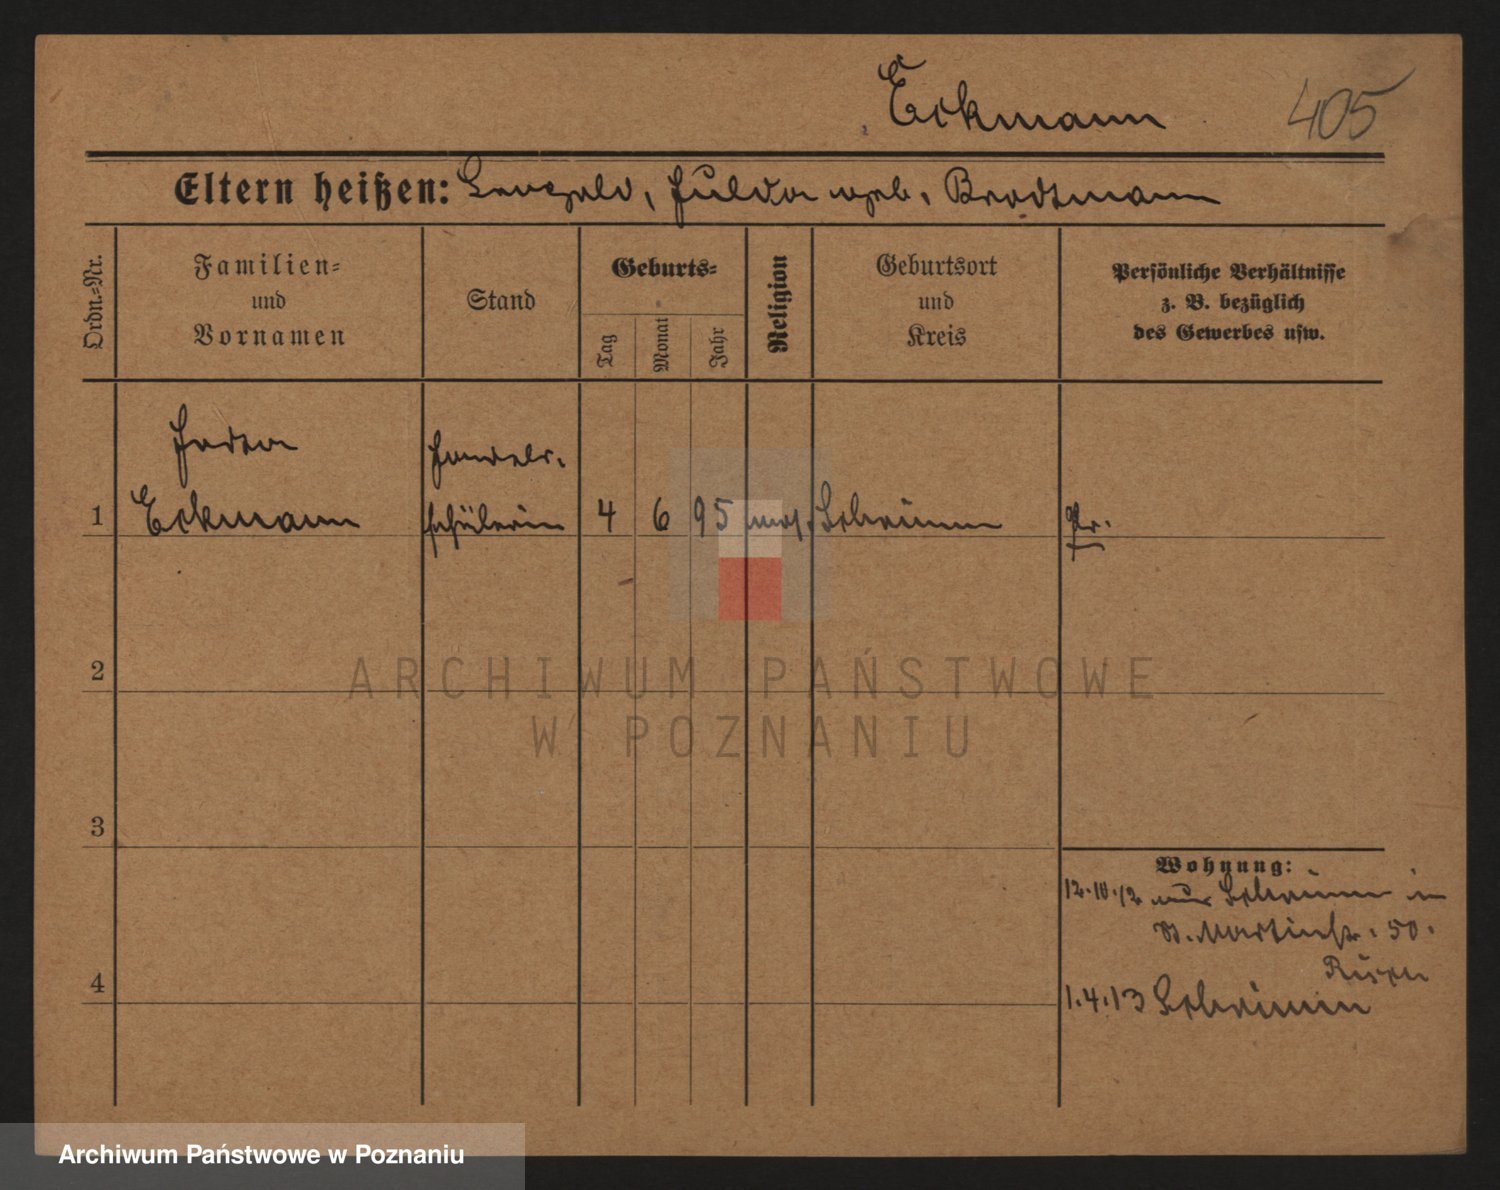 Eckmann 405
Eltern heißen: Leopold, Hulda geb. Brodtmann
Ordn.-Nr.
Familien-
und
Vornamen
Stand
Geburts-
Tag
Monat
Jahr
Religion
Geburtsort
und
Kreis
Persönliche Verhältnisse
z. B. bezüglich
des Gewerbes usw.
Handels-
1 Eckmann schülerin 4 6 95 mos. Schrimm Pr.
2
3
4
Wohnung:
12.10.12 aus Schrimm in
St. Martinstr. 50.
1.4.13 Schrimm
ARCHIWUM PAŃSTWOWE
W POZNANIU
Archiwum Państwowe w Poznaniu